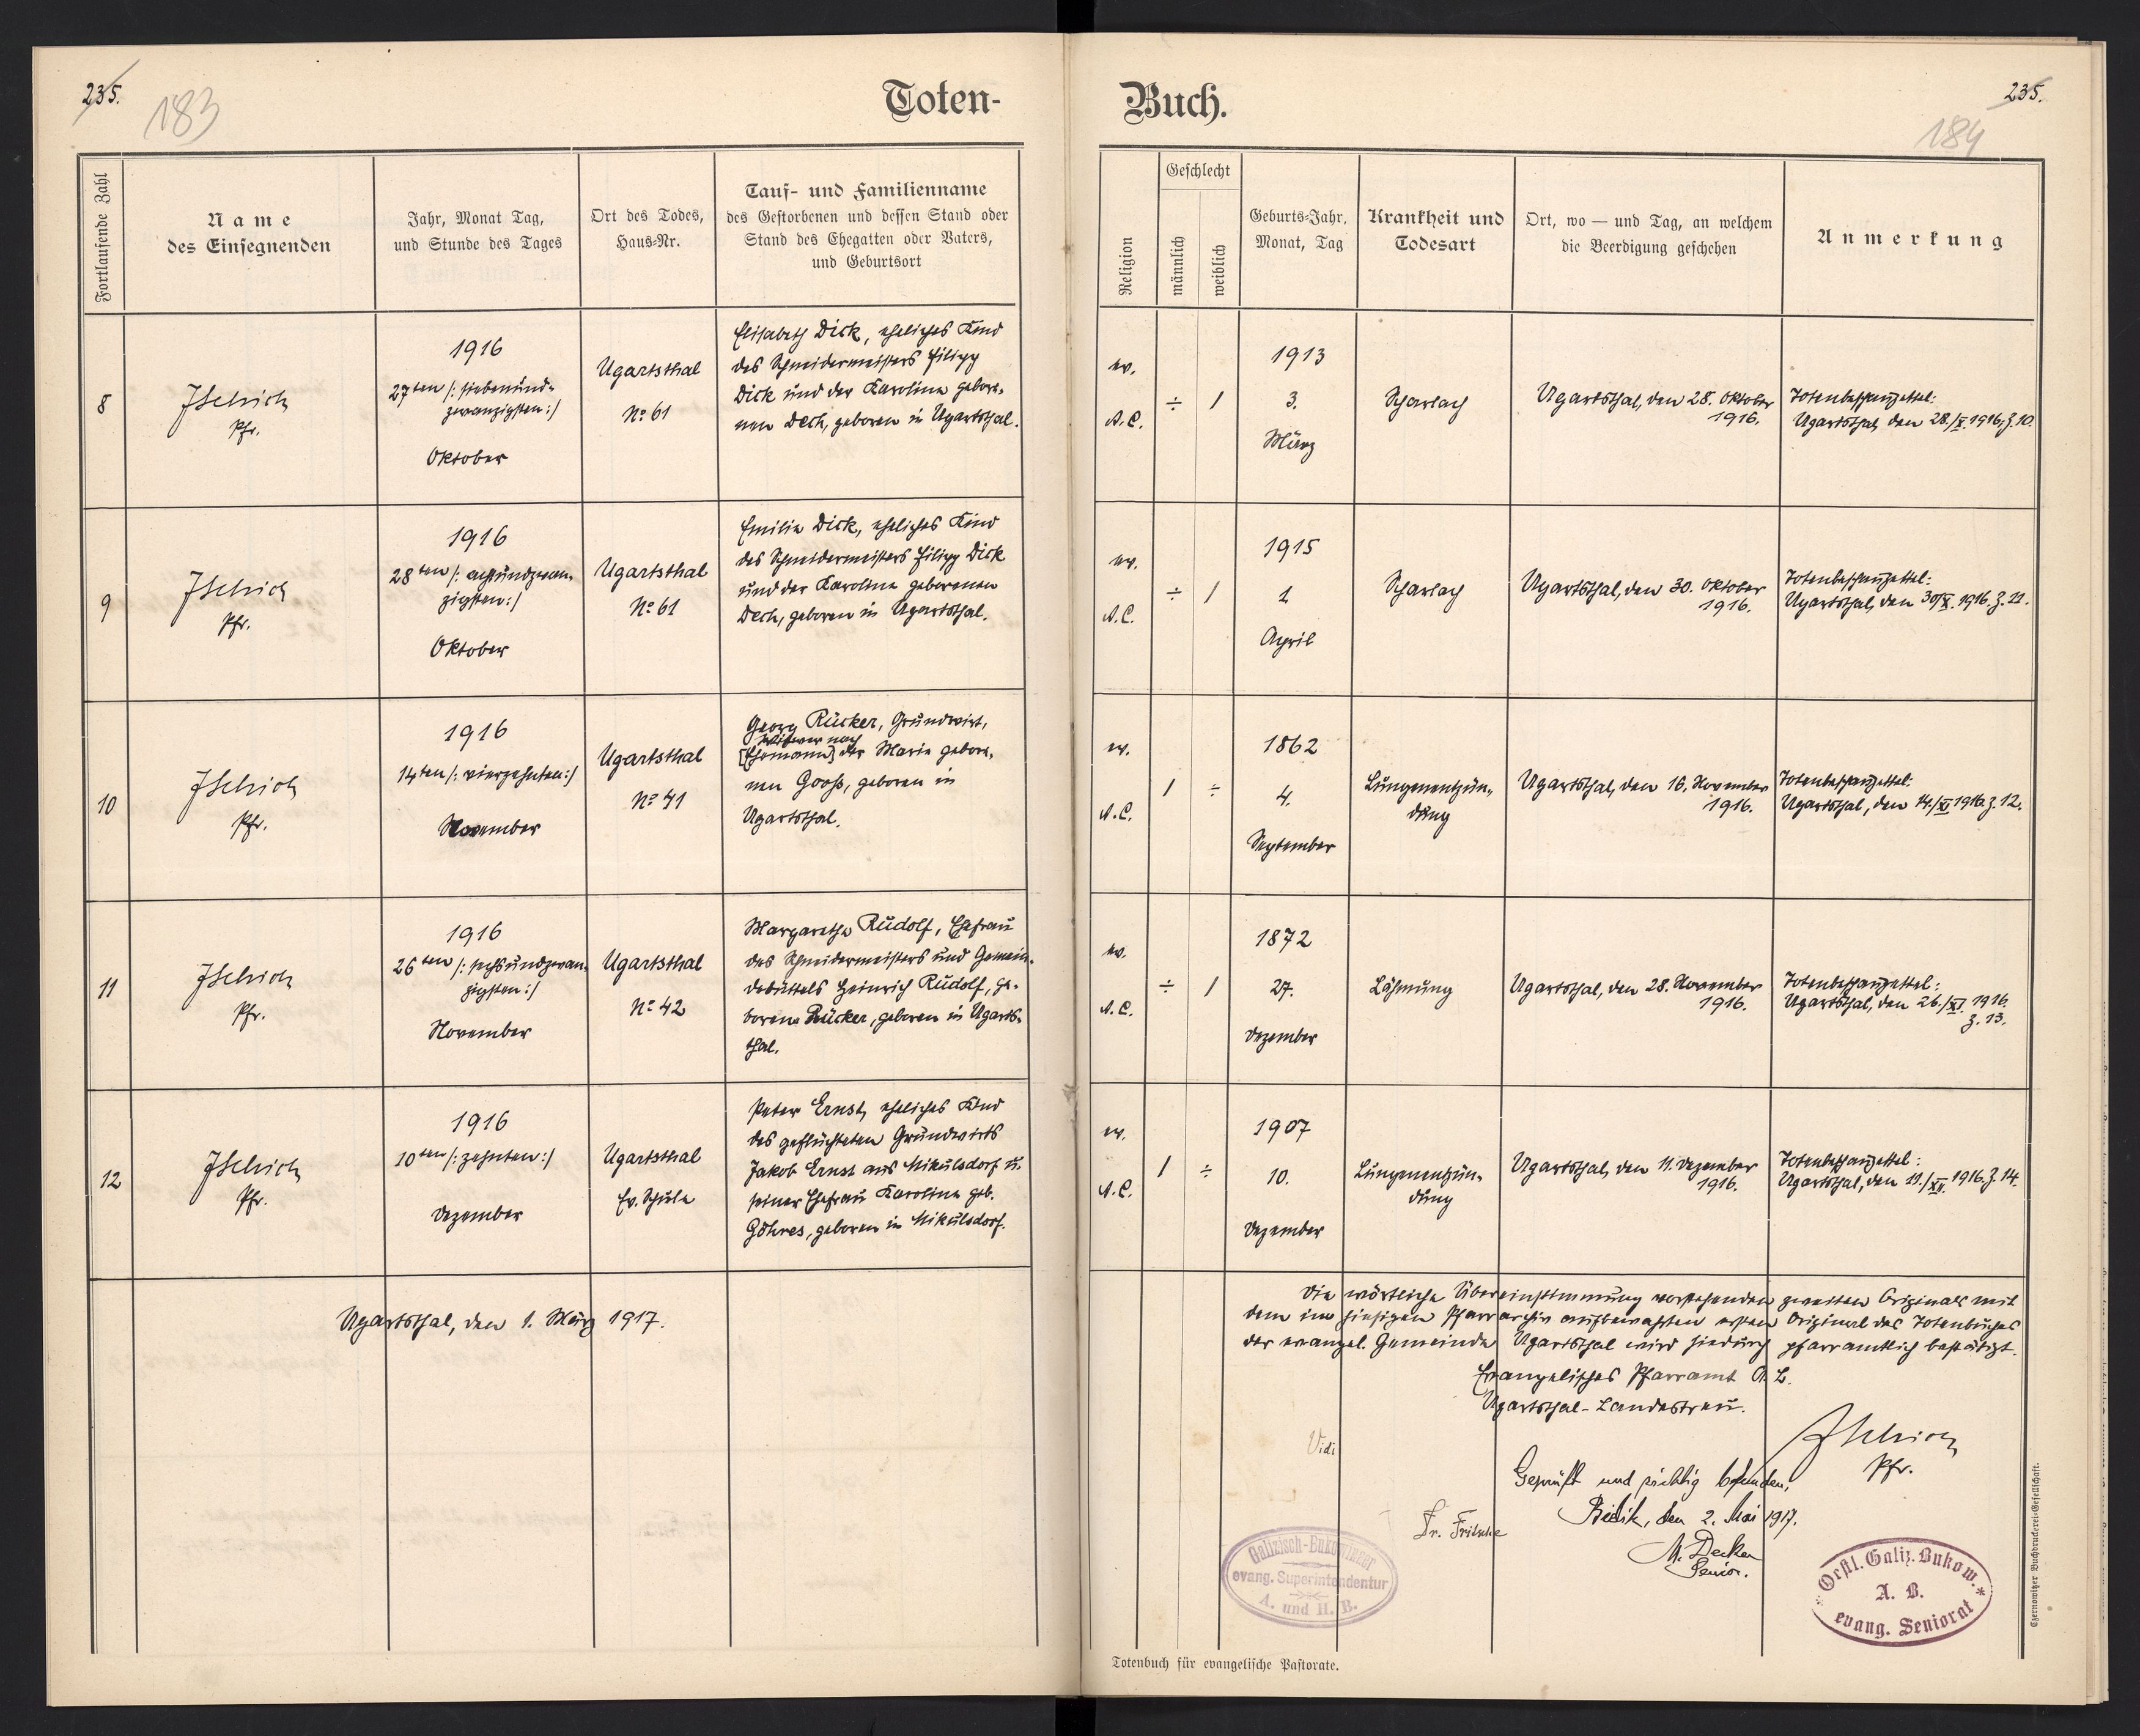 235.
183
Toten-
Fortlaufende Zahl
Name
des Einsegnenden
Jahr, Monat Tag,
und Stunde des Tages
Ort des Todes,
Haus-Nr.
Tauf- und Familienname
des Gestorbenen und dessen Stand oder
Stand des Ehegatten oder Vaters,
und Geburtsort
8
Pfr.
1916
27ten /: siebenund-
zwanzigsten :/
Oktober
Ugartsthal
No 61
Elisabeth Dick, eheliches Kind
des Schneidermeisters Filipp
Dick und der Karolina gebore-
nen Dech, geboren in Ugartsthal.
9
Pfr.
1916
28ten /: achtundzwan-
zigsten :/
Oktober
Ugartsthal
No 61
Emilie Dick, eheliches Kind
des Schneidermeisters Filipp Dick
und der Karolina geborenen
Dech, geboren in Ugartsthal.
10
Pfr.
1916
14ten /: vierzehnten :/
November
Ugartsthal
No 41
Georg Rücker, Grundwirt,
Witwer nach
[Ehemann] der Maria gebore-
nen Gooß, geboren in
Ugartsthal.
11
Pfr.
1916
26ten /: sechsundzwan-
zigsten :/
November
Ugartsthal
No 42
Margaretha Rudolf, Ehefrau
des Schneidermeisters und Gemein-
debüttels Heinrich Rudolf, ge-
borene Rücker, geboren in Ugarts-
thal.
12
Pfr.
1916
10ten /: zehnten :/
Dezember
Ugartsthal
Ev. Schule
Peter Ernst, eheliches Kind
des geflüchteten Grundwirts
Jakob Ernst aus Mikulsdorf u.
seiner Ehefrau Karolina geb.
Göhres, geboren in Mikulsdorf.
Ugartsthal, den 1. März 1917.
Buch.
235.
184
Religion
Geschlecht
männlich
weiblich
Geburts-Jahr,
Monat, Tag
Krankheit und
Todesart
Ort, wo — und Tag, an welchem
die Beerdigung geschehen
Anmerkung
ev.
A.C.
÷
/
1913
3.
März
Scharlach
Ugartsthal, den 28. Oktober
1916.
Totenbeschauzettel:
Ugartsthal, den 28./X. 1916, Z. 10.
ev.
A.C.
÷
/
1915
1
April
Scharlach
Ugartsthal, den 30. Oktober
1916.
Totenbeschauzettel:
Ugartsthal, den 30/X. 1916. Z. 11.
ev.
A.C.
/
÷
1862
4.
September
Lungenentzün-
dung
Ugartsthal, den 16. November
1916.
Totenbeschauzettel:
Ugartsthal, den 14./XI 1916. Z. 12.
ev.
A.C.
÷
/
1872
27.
Dezember
Lähmung
Ugartsthal, den 28. November
1916.
Totenbeschauzettel:
Ugartsthal, den 26./XI. 1916.
Z. 13.
ev.
A.C.
/
÷
1907
10.
Dezember
Lungenentzün-
dung
Ugartsthal, den 11. Dezember
1916.
Totenbeschauzettel:
Ugartsthal, den 11./XII. 1916. Z. 14.
Die wörtliche Übereinstimmung vorstehenden zweiten Originals mit
dem im hiesigen Pfarrarchiv aufbewahrten ersten Original des Totenbuches
der evangel. Gemeinde Ugartsthal wird hiedurch pfarramtlich bestätigt.
Evangelisches Pfarramt A.B.
Ugartsthal-Landestreu.
Pfr.
Vidi
Geprüft und richtig befunden,
den 2. Mai 1917.
Dr. Fritsche
M. Decker
Senior.
Galizisch-Bukowinner
evang. Superintendentur
A. und H. B.
Oestl. Galiz. Bukow.
A. B.
evang. Seniorat
Totenbuch für evangelische Pastorate.
Czernowitzer Buchdruckerei-Gesellschaft.